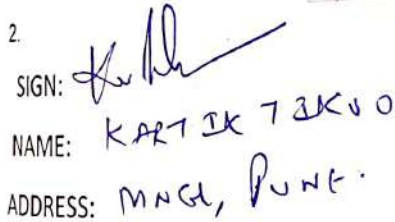 2.
SIGN:
NAME: KARTIK
ADDRESS: MNGL, PUNE.